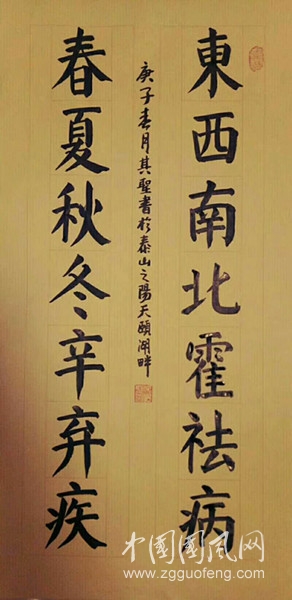 東西南北霍祛病
春夏秋冬辛弃疾
庚子春月其聖書於泰山之陽天頤湖畔
中國國風网
www.zgguofeng.com